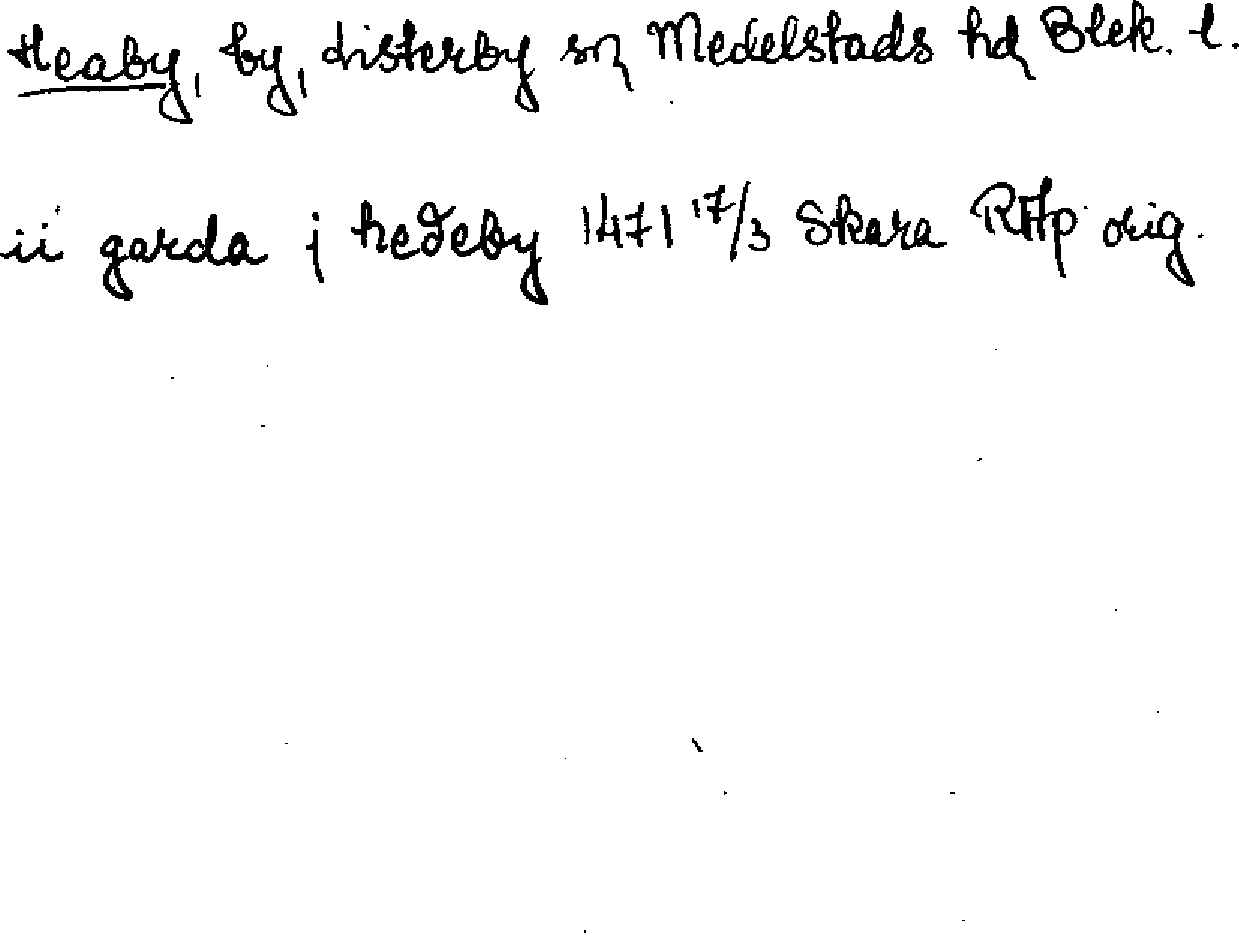 Heaby, by, Listerby sn Medelstads hd Blek. l.
ii garda j hedeby 1471 17/3 Skara RAp orig.